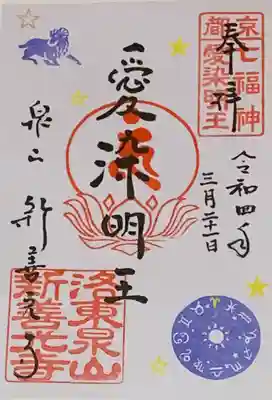 奉拝
京都
七福神
愛染明王
令和四年
三月二十一日
愛染明王
泉山
新善光寺
洛東泉山
新善光寺